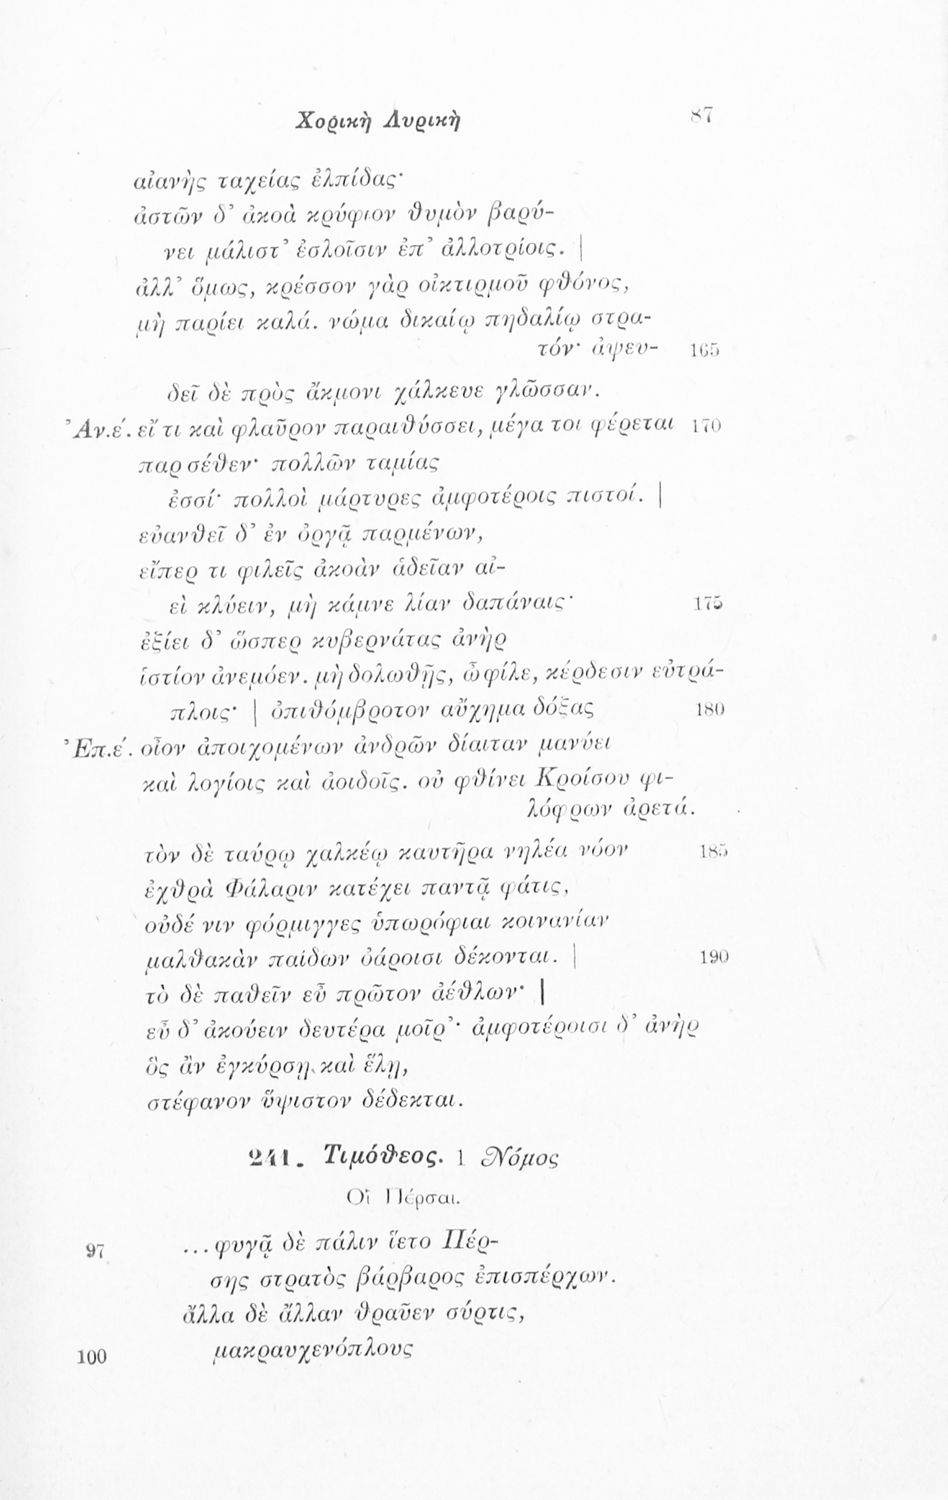 Χορικὴ Λυρικὴ 87
αἰανὴς ταχείας ἐλπίδας·
ἀστῶν δ’ ἀκοὰ κρύφιον θυμὸν βαρύ-
νει μάλιστ’ ἐσλοῖσιν ἐπ’ ἀλλοτρίοις. |
ἀλλ’ ὅμως, κρέσσον γὰρ οἰκτιρμοῦ φθόνος,
μὴ παρίει καλά. νώμα δικαίῳ πηδαλίῳ στρα-
τόν· ἀψευ- 165
δεῖ δὲ πρὸς ἄκμονι χάλκευε γλῶσσαν.
Ἀν.ε΄. εἴ τι καὶ φλαῦρον παραιθύσσει, μέγα τοι φέρεται 170
παρ σέθεν· πολλῶν ταμίας
ἐσσί· πολλοὶ μάρτυρες ἀμφοτέροις πιστοί. |
εὐανθεῖ δ’ ἐν ὀργᾷ παρμένων,
εἴπερ τι φιλεῖς ἀκοὰν ἁδεῖαν αἰ-
εὶ κλύειν, μὴ κάμνε λίαν δαπάναις· 175
ἐξίει δ’ ὥσπερ κυβερνάτας ἀνὴρ
ἱστίον ἀνεμόεν. μὴ δολωθῇς, ὦ φίλε, κέρδεσιν εὐτρά-
πλοις· | ὀπιθόμβροτον αὔχημα δόξας 180
Ἐπ.ε΄. οἷον ἀποιχομένων ἀνδρῶν δίαιταν μανύει
καὶ λογίοις καὶ ἀοιδοῖς. οὐ φθίνει Κροίσου φι-
λόφρων ἀρετά.
τὸν δὲ ταύρῳ χαλκέῳ καυτῆρα νηλέα νόον 185
ἐχθρὰ Φάλαριν κατέχει παντᾷ φάτις,
οὐδέ νιν φόρμιγγες ὑπωρόφιαι κοινανίαν
μαλθακὰν παίδων ὀάροισι δέκονται. | 190
τὸ δὲ παθεῖν εὖ πρῶτον ἀέθλων· |
εὖ δ’ ἀκούειν δευτέρα μοῖρ’· ἀμφοτέροισι δ’ ἀνὴρ
ὃς ἂν ἐγκύρσῃ καὶ ἕλῃ,
στέφανον ὕψιστον δέδεκται.
241. Τιμόθεος. 1 Νόμος
Οἱ Πέρσαι.
97 ...φυγᾷ δὲ πάλιν ἵετο Πέρ-
σης στρατὸς βάρβαρος ἐπισπέρχων.
ἄλλα δὲ ἄλλαν θραῦεν σύρτις,
100 μακραυχενόπλους